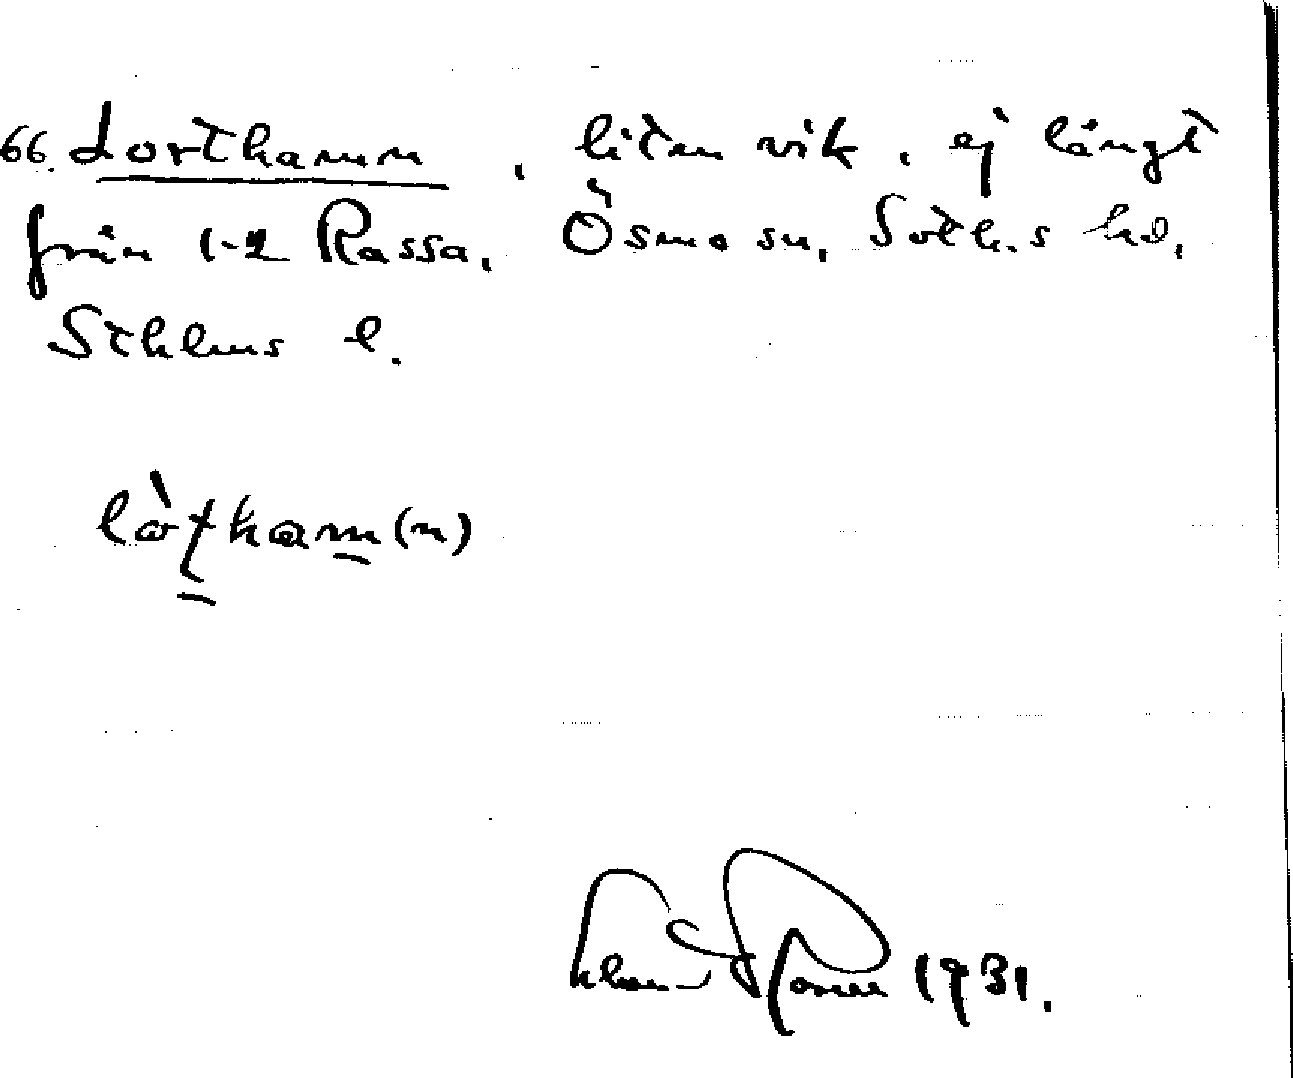 66. Lorthamn, liten vik, ej långt
från 1-2 Rassa. Ösmo sn, Soth.s hd.
Sthlms l.
1931.